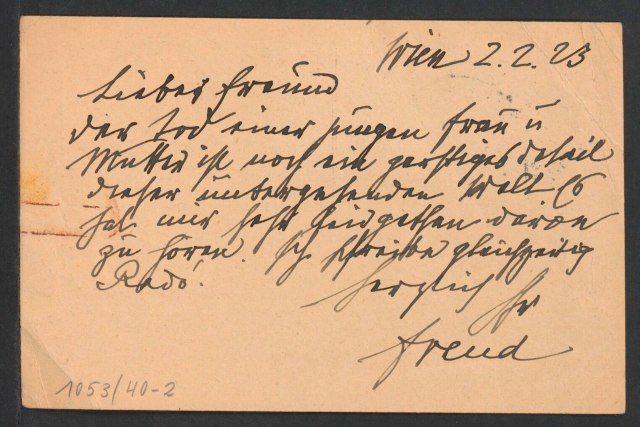 Wien 2. 2. 23
Lieber Freund
Der Tod einer jungen Frau u
Mutter ist noch ein garstiges Detail
dieser untergehenden Welt Es
hat mir sehr leid gethan davon
zu hören. Ich schreibe gleichzeitig
Radó.
Herzlich Ihr
Freud
1053/40-2